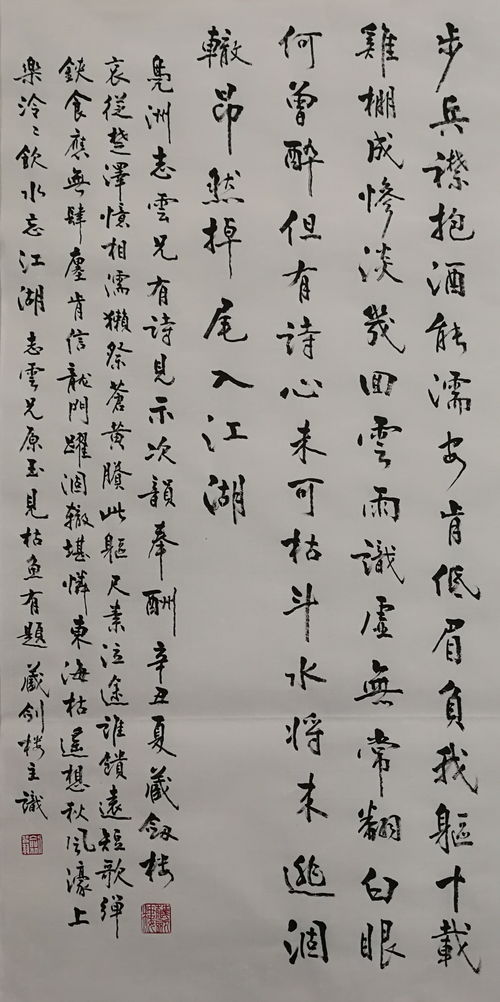 步兵襟抱酒能濡安肯低眉負我軀十載
雞棚成慘淡幾回雲雨識虛無常翻白眼
何曾醉但有詩心未可枯斗水將來逃涸
轍昂然掉尾入江湖
鳧洲志雲兄有詩見示次韻奉酬 辛丑夏藏劍樓
哀從楚澤憶相濡獺祭蒼黃賸此軀尺素泣途誰饋遠短歌彈
鋏食應無肆塵肯信龍門躍涸轍堪憐東海枯遥想秋風濠上
樂泠〻飲水忘江湖 志雲兄原玉見枯魚有題 藏劍樓主識